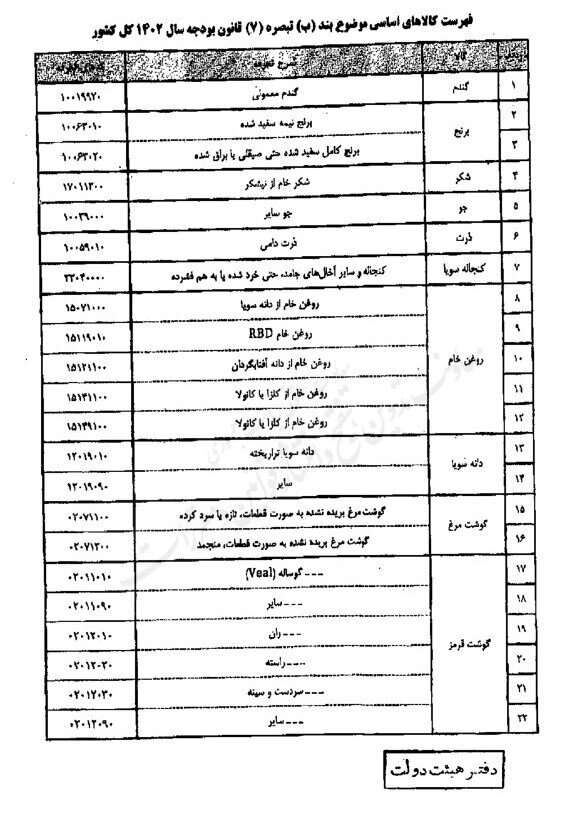 فهرست کالاهای اساسی موضوع بند (ب) تبصره (۷) قانون بودجه سال ۱۴۰۲ کل کشور
ردیف کالا شرح تعرفه
۱ گندم گندم معمولی ۱۰۰۱۹۹۲۰
۲ برنج برنج نیمه سفید شده ۱۰۰۶۳۰۱۰
۳ برنج کامل سفید شده حتی صیقلی یا براق شده ۱۰۰۶۳۰۲۰
۴ شکر شکر خام از نیشکر ۱۷۰۱۱۳۰۰
۵ جو جو سایر ۱۰۰۳۹۰۰۰
۶ ذرت ذرت دامی ۱۰۰۵۹۰۱۰
۷ کنجاله سویا کنجاله و سایر آخال‌های جامد، حتی خرد شده یا به هم فشرده ۲۳۰۴۰۰۰۰
۸ روغن خام روغن خام از دانه سویا ۱۵۰۷۱۰۰۰
۹ روغن خام RBD ۱۵۱۱۹۰۱۰
۱۰ روغن خام از دانه آفتابگردان ۱۵۱۲۱۱۰۰
۱۱ روغن خام از کلزا یا کانولا ۱۵۱۴۱۱۰۰
۱۲ روغن خام از کلزا یا کانولا ۱۵۱۴۹۱۰۰
۱۳ دانه سویا دانه سویا تراریخته ۱۲۰۱۹۰۱۰
۱۴ سایر ۱۲۰۱۹۰۹۰
۱۵ گوشت مرغ گوشت مرغ بریده نشده به صورت قطعات، تازه یا سرد کرده ۰۲۰۷۱۱۰۰
۱۶ گوشت مرغ بریده نشده به صورت قطعات، منجمد ۰۲۰۷۱۲۰۰
۱۷ گوشت قرمز ---گوساله (Veal) ۰۲۰۱۱۰۱۰
۱۸ ---سایر ۰۲۰۱۱۰۹۰
۱۹ ---ران ۰۲۰۱۲۰۱۰
۲۰ ---راسته ۰۲۰۱۲۰۲۰
۲۱ ---سردست و سینه ۰۲۰۱۲۰۳۰
۲۲ ---سایر ۰۲۰۱۲۰۹۰
دفتر هیئت دولت